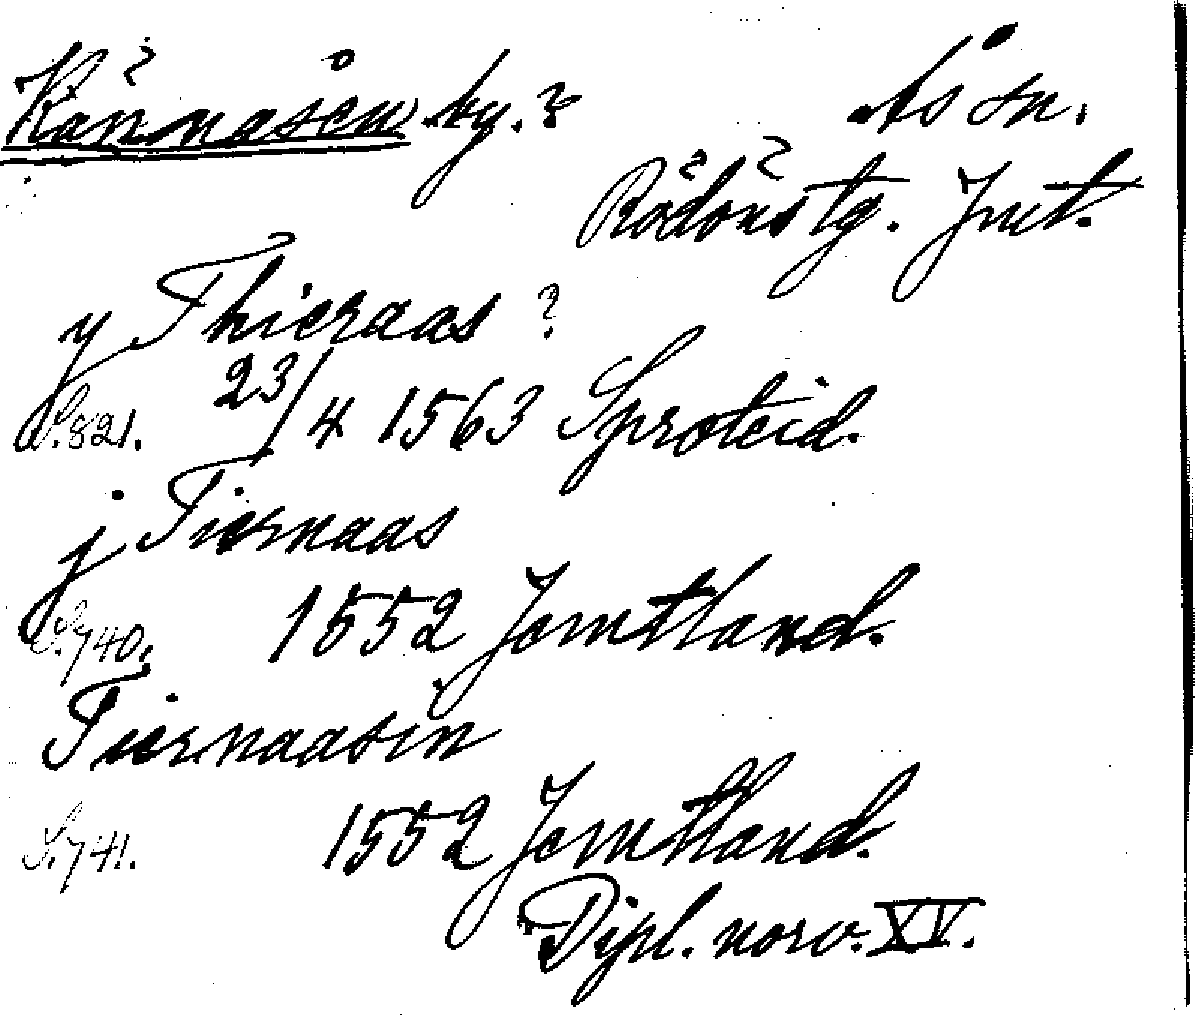 Kännåsen by.?
Ås sn.
Rödöns tg. Jmt.
y Thieraas?
S. 821. 23/4 1563 Sproteid.
j Tiernaas
S. 740. 1552 Jemtland.
Tiernaasin
S. 741. 1552 Jemtland.
Dipl. norv. XV.